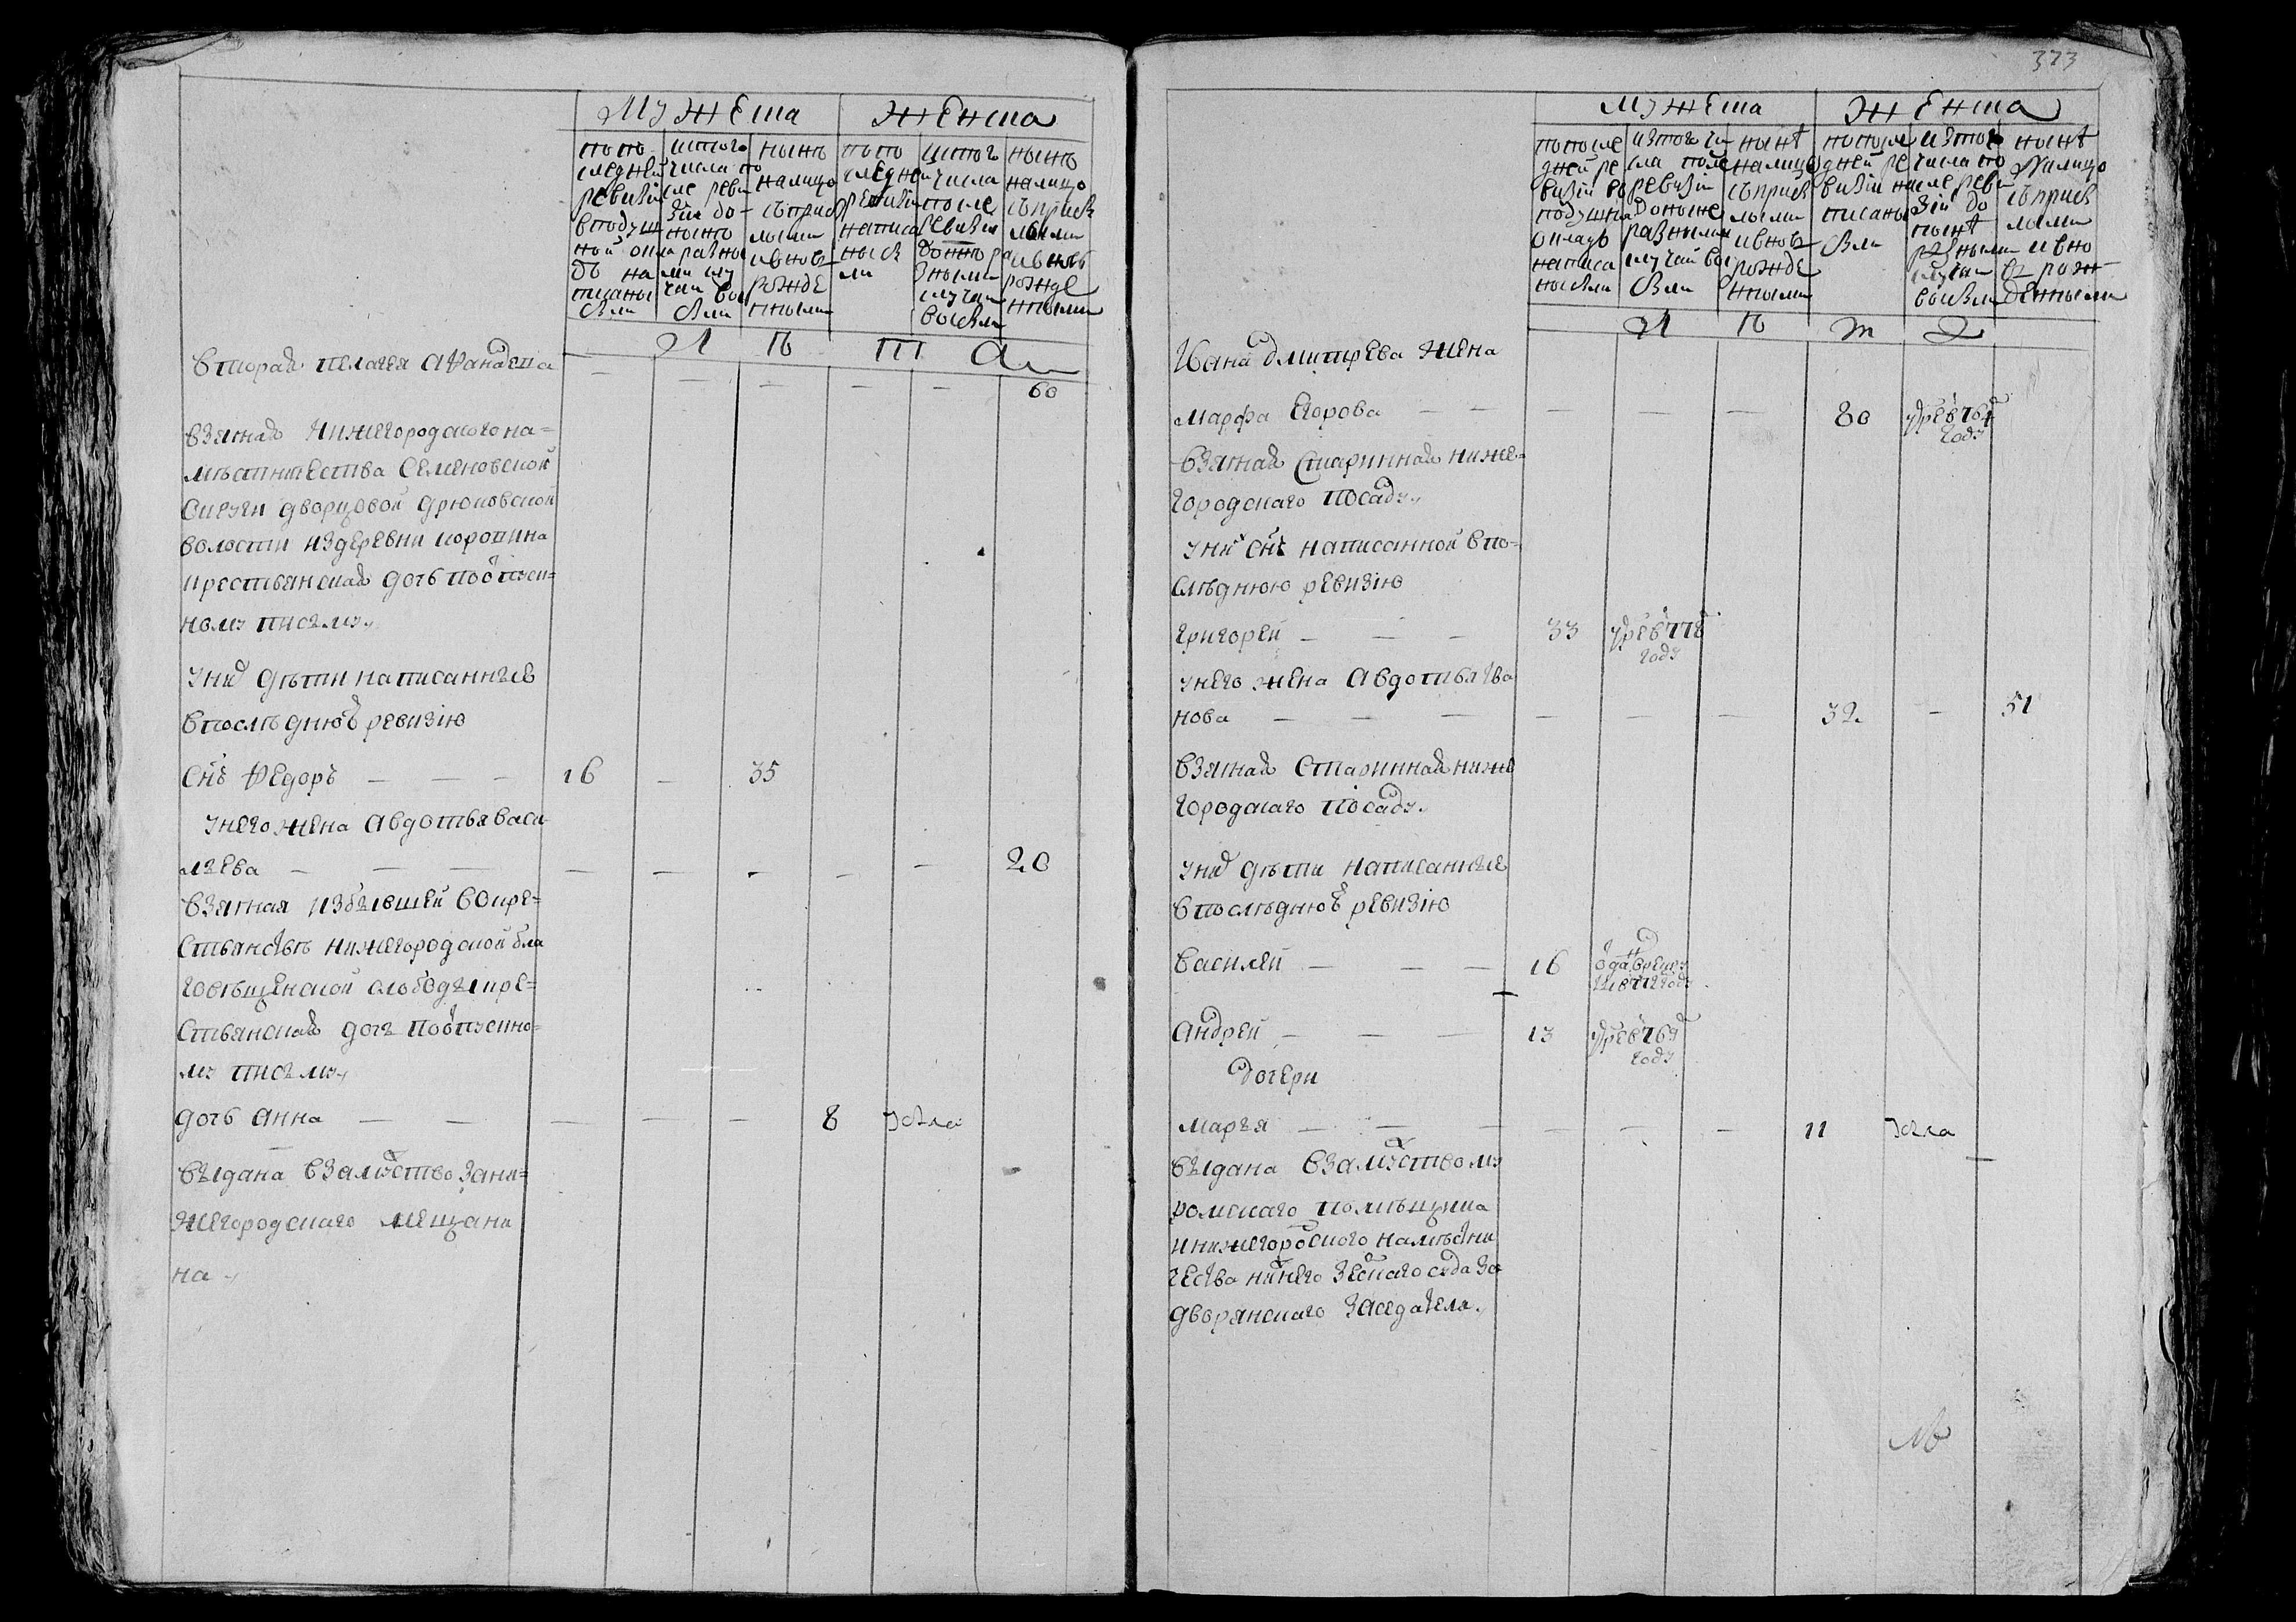 мужеска женска
попо
следней
ревизiи
вподуш
ной окла
де на
писаны
были
истого
числа по
сле реви
зiи до
ныне
разны
ми слу
чаи вы
были
ныне
налицо
сприбы
лыми
ивновь
рожде
нными
попо
следней
ревизiи
написа
ны бы
ли
истого
числа
после
ревизiи
разными
случаи
выбыли
ныне
налицо
сприбы
лыми
ивновь
рожде
нными
л п ш
вторая пелагея афанасева — — — — — 60
взятая нижегородского на=
местничества семеновской
округи дворцовой дрюковской
волости издеревни коротина
крестьянская дочь поотпуск=
ному письму
унихъ дети написанные
впоследнюю ревизiю
снъ федоръ — — — 16 — 35
унего жена авдотья васи
льева — — — — — — — — 20
взятая избывшей вокре=
стьянстве нижегородской бла
говещенской слободы кре=
стьянская дочь поотпускно=
му письму
дочь анна — — — — — 8 Усела
выдана взамужство зани=
жегородского мещани
на
373
мужеска женска
попосле
дней ре
визiи во
подушно
окладъ
написа
ны были
изтого чи
сла после
ревизiи
доныне
разными
случаи вы
были
ныне
налицо
сприбы
лыми
ивновь
рожде
нными
попосле
дней ре
визiи на
писаны
были
изтого
числа по
сле реви
зiи до
ныне
разными
случаи
выбыли
ныне
налицо
сприбы
лыми
ивно
вь рож
денными
л п т
Ивана дмитрева жена
марфа егорова — — — — — 80 умре в 764 году
взятая старинная ниже=
городскаго посаду
унихъ снъ написанной впо=
следнюю ревизiю
григорей — — — 33 умре в 778 году
унего жена авдотья ива
нова — — — — — — 32 — 51
взятая стариннаянижe
городскаго посаду
унихъ дети написанные
впоследнюю ревизiю
василей — — — 16 отданъ врекруты году
андрей — — — 13 умре в 769 году
дочери
марья — — — — — — 11 Усела
выдана взамужство му
ромскаго помещика
инижегородского наместни
чества нижнего земскаго суда за
дворянскаго заседателя